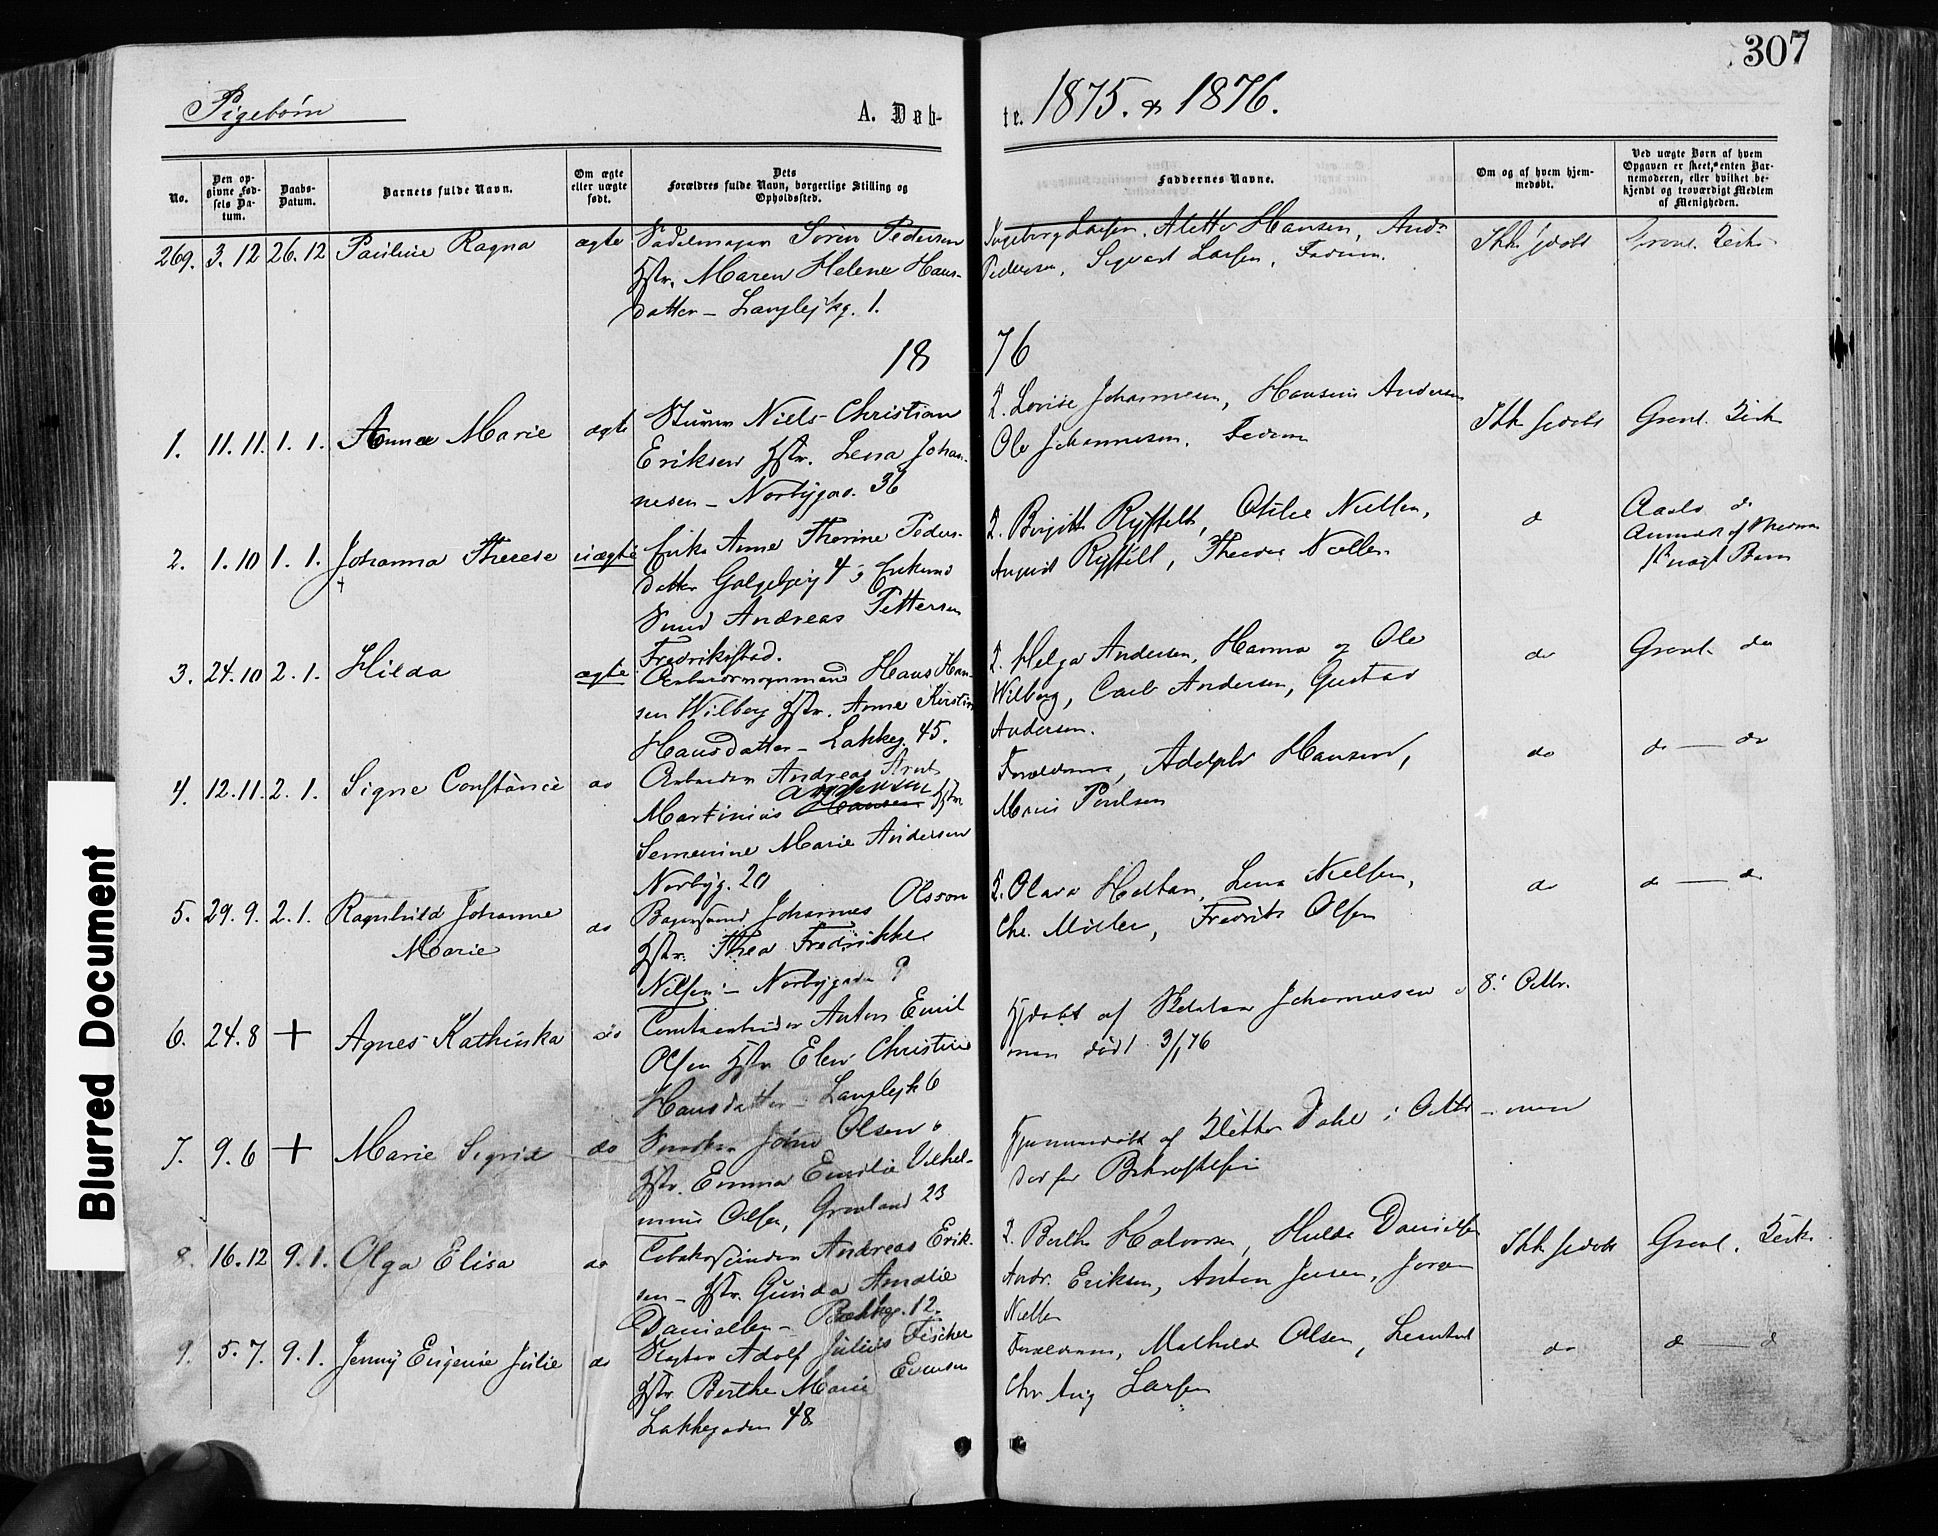 307
Pigebørn
A. Døb-
te. 1875. & 1876.
No.
Den op-
givne Fød-
sels Da-
tum.
Daabs-
Datum.
Barnets fulde Navn.
Om ægte
eller uægte
født.
Dets
Forældres fulde Navn, borgerlige Stilling og
Opholdssted.
Faddernes Navne.
Om og af hvem hjem-
medøbt.
Ved uægte Børn af hvem
Opgaven er skeet, enten Bar-
nemoderen, eller hvilket be-
kjendt og troværdigt Medlem
af Menigheden.
269. 3. 12 26. 12 Pauline Ragna ægte Sadelmager Søren Pedersen
Hstr. Maren Helene Hans-
datter – Langlejkg. 1.
Ingeborg Larsen, Alette Hansen, Andr.
Pedersen, Sigvart Larsen, Faderen.
Ikke hjdøbt
Grønl. Kirke
18
76
1. 11. 11. 1. 1. Anna Marie ægte Niels Christian
Eriksen Hstr. Lena Johan-
nesen – Norbygad. 36
2. Lovise Johannesen, Hansine Andersen
Ole Johannesen, Faderen
Ikke hjdøbt
Grønl. Kirke
2. 1. 10 1. 1. Johanna Therese uægte Enke Anne Thorine Peders-
datter Galgebjerg 4 Enkemd
Smed Andreas Pettersen
Fredrikstad.
2. Birgitte Ryffelt, Otilie Nielsen,
August Ryffelt, Theodor Nielsen
do
Aaslo do
3. 24. 10 2. 1. Hilda ægte Arbeidsmand Hans Han-
sen Wilberg Hstr. Anne Kirstine
Hansdatter – Lakkeg. 45.
2. Helga Andersen, Hanna og Ole
Wilberg, Carl Andersen, Gustav
Andersen.
do
Grønl. do
4. 12. 11. 2. 1. Signe Constance do Arbeider Andreas
Martinius Hansen Andersen Hstr.
Semenine Marie Andersen
Norbyg. 20
Forældrene, Adolph Hansen,
Marie Poulsen
do
do — do
5. 29. 9. 2. 1. Ragnhild Johanne
Marie
do
Bagersvend Johannes Olsson
Hstr. Thea Fredrikke
Nilsen – Norbygaden 9
2. Olava Holtan, Lena Nielsen,
Chr. Møller, Fredrik Olsen
do
do — do
6. 24. 8 + Agnes Kathinka do Anton Emil
Olsen Hstr. Elen Christine
Hansdatter – Langlejk 6
Hjdøbt af Johannesen 8. Octbr.
men død 3/1 76
7. 9. 6 + Marie Sigrid do Snedker Johan Olsen
Hstr. Emma Emilie Vilhel-
mine Olsen, Grønland 23
Hjemmedøbt af Dahl i Octbr – men
der før Bekræftelsen
8. 16. 12 9. 1. Olga Elisa do Tobakspinder Andreas Erik-
sen – Hstr. Gunda Amalie
Danielsen – Bækkeg. 12.
2. Berthe Halvorsen, Hulda Danielsen
Andr. Eriksen, Anton Jensen, Joran
Nielsen
Ikke hjdøbt
Grønl. Kirke
9. 5. 7. 9. 1. Jenny Eugenie Julie do Slagter Adolf Julius Fischer
Hstr. Berthe Marie Evensen
Lakkegaden 48
Forældrene, Mathilde Olsen,
Chr Aug Larsen
do
do — do
Blurred Document